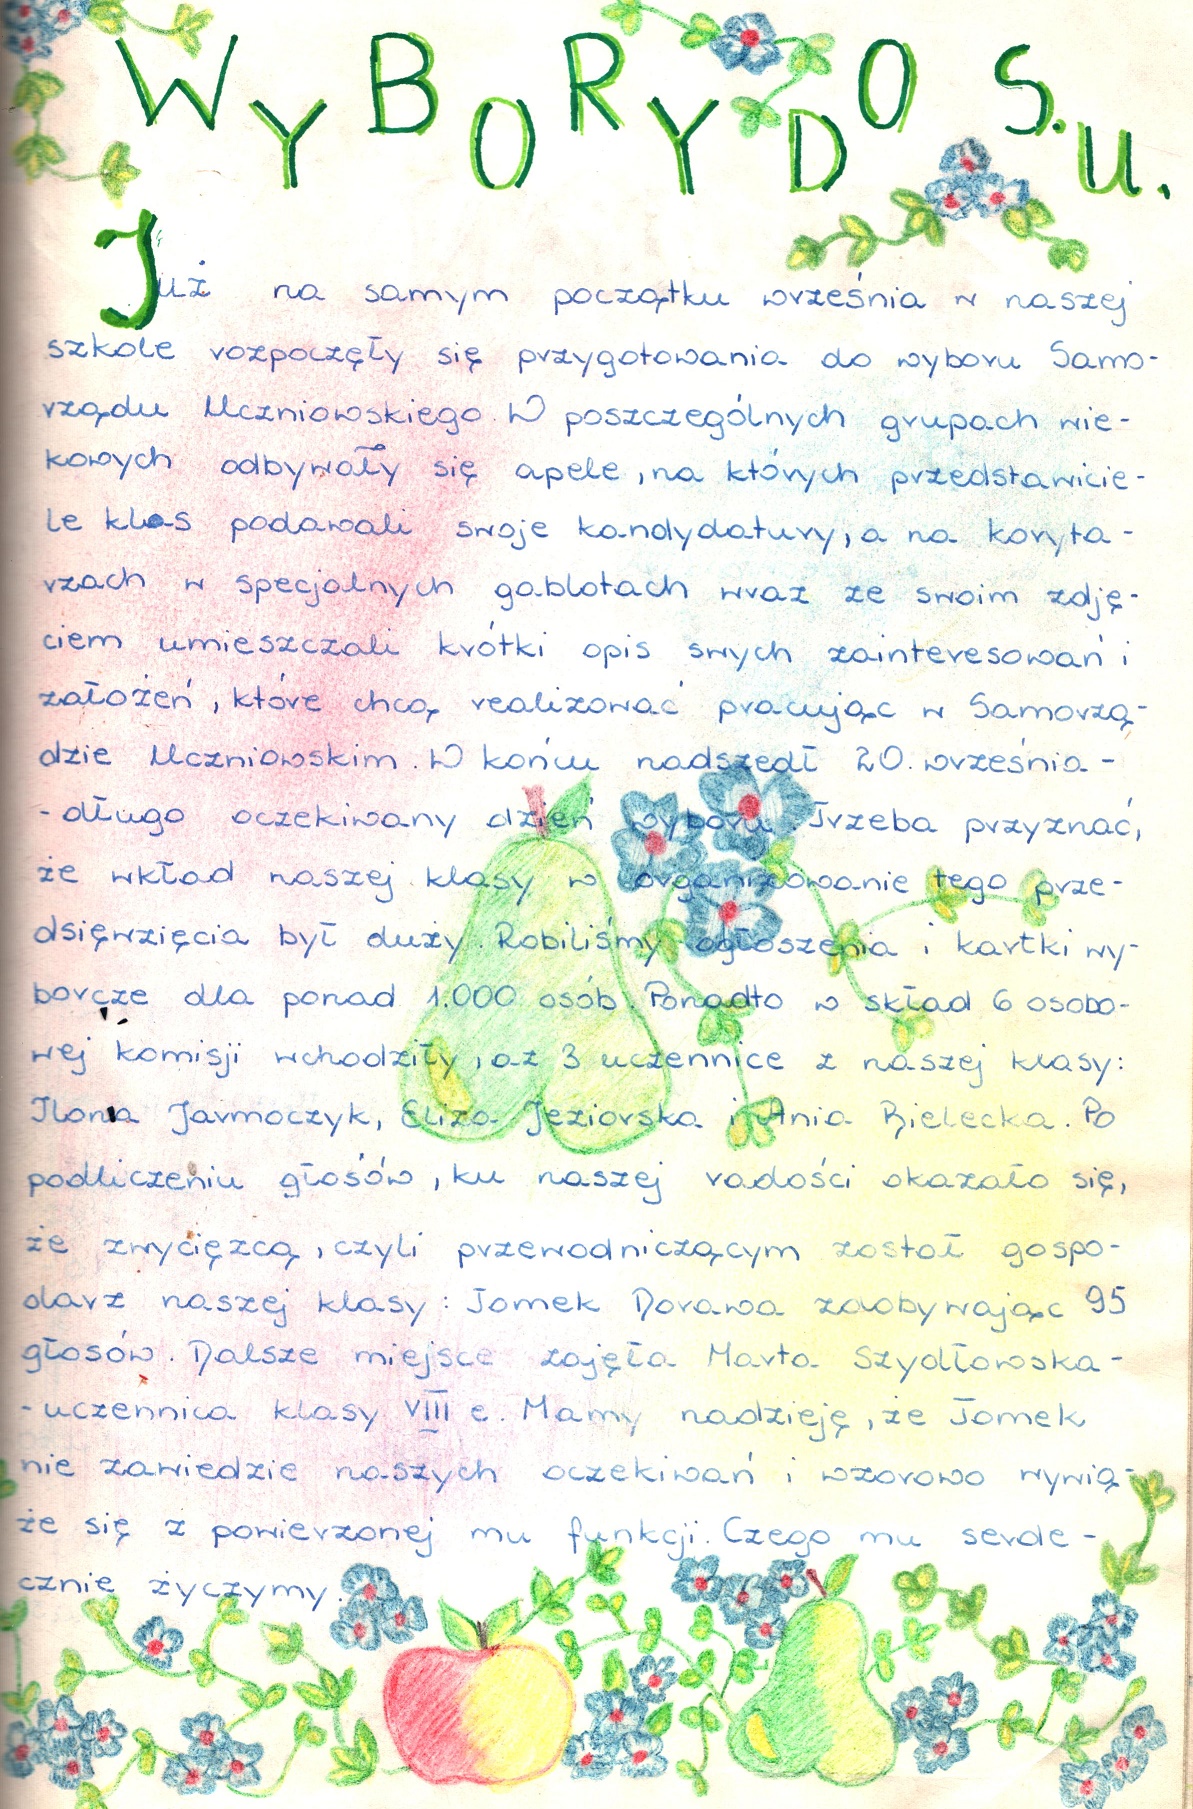 WYBORY DO S.U.
Już na samym początku września w naszej
szkole rozpoczęły się przygotowania do wyboru Samo-
rządu Uczniowskiego. W poszczególnych grupach wie-
kowych odbywały się apele, na których przedstawicie-
le klas podawali swoje kandydatury, a na koryta-
rzach w specjalnych gablotach wraz ze swoim zdję-
ciem umieszczali krótki opis swych zainteresowań i
założeń, które chcą realizować pracując w Samorzą-
dzie Uczniowskim. W końcu nadszedł 20. września -
- długo oczekiwany dzień wyboru. Trzeba przyznać,
że wkład naszej klasy w organizowanie tego prze-
dsięwzięcia był duży. Robiliśmy ogłoszenia i kartki wy-
borcze dla ponad 1.000 osób. Ponadto w skład 6 osobo-
wej komisji wchodziły, aż 3 uczennice z naszej klasy:
Ilona Jarmoczyk, Eliza Jeziorska i Ania Bielecka. Po
podliczeniu głosów, ku naszej radości okazało się,
że zwycięzcą, czyli przewodniczącym został gospo-
darz naszej klasy: Tomek Dorawa zdobywając 95
głosów. Dalsze miejsce zajęła Marta Szydłowska-
- uczennica klasy VIII e. Mamy nadzieję, że Tomek
nie zawiedzie naszych oczekiwań i wzorowo wywią-
że się z powierzonej mu funkcji. Czego mu serde-
cznie życzymy.